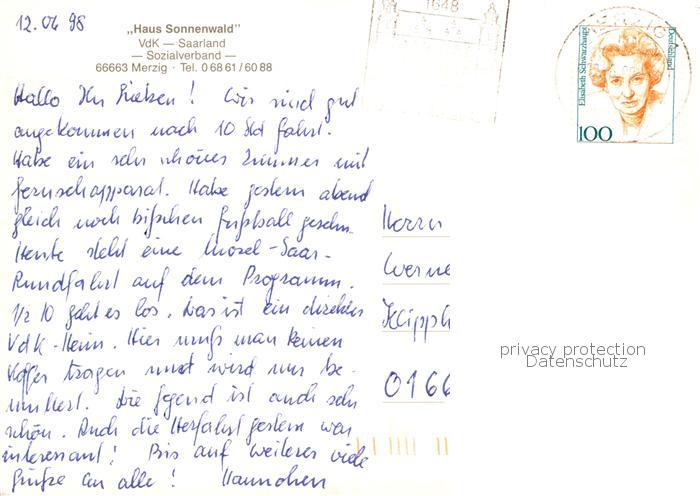 12.04 98
„Haus Sonnenwald"
VdK — Saarland
— Sozialverband —
66663 Merzig · Tel. 0 68 61 / 60 88
Hallo Ihr Lieben! Wir sind gut
angekommen nach 10 Std fahrt.
Habe ein sehr schönes Zimmer mit
fernsehapparat. Habe gestern abend
gleich noch bißchen fußball gesehn.
Heute steht eine Mosel-Saar-
Rundfahrt auf dem Programm.
1/2 10 geht es los. Das ist ein direktes
VdK-Heim. Hier muß man keinen
Koffer tragen und wird nur be-
muttert. Die Gegend ist auch sehr
schön. Auch die Herfahrt gestern war
interessant! Bis auf weiteres viele
Grüße an alle!
1648
MERZIG
Elisabeth Schwarzhaupt
Deutschland
100
Herrn
Werne
Klipph
0166
privacy protection
Datenschutz